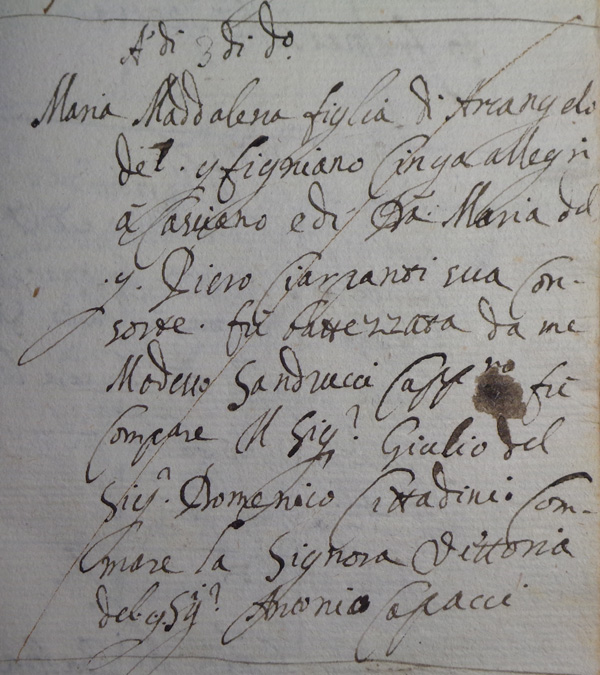 A dì 3 di dº.
Maria Maddalena figlia di Arcangelo
del. q Figniano Cinganallegri
a Casciano e di Dª. Maria del
.q. Piero Ciarpanti sua Con-
sorte. fù battezzata da me
Modesto Sandrucci Capp.no fù
Compare Il Sigr. Giulio del
Sigr. Domenico Cittadini. Com-
mare la Signora Vittoria
del q Sigr. Antonio Capacci